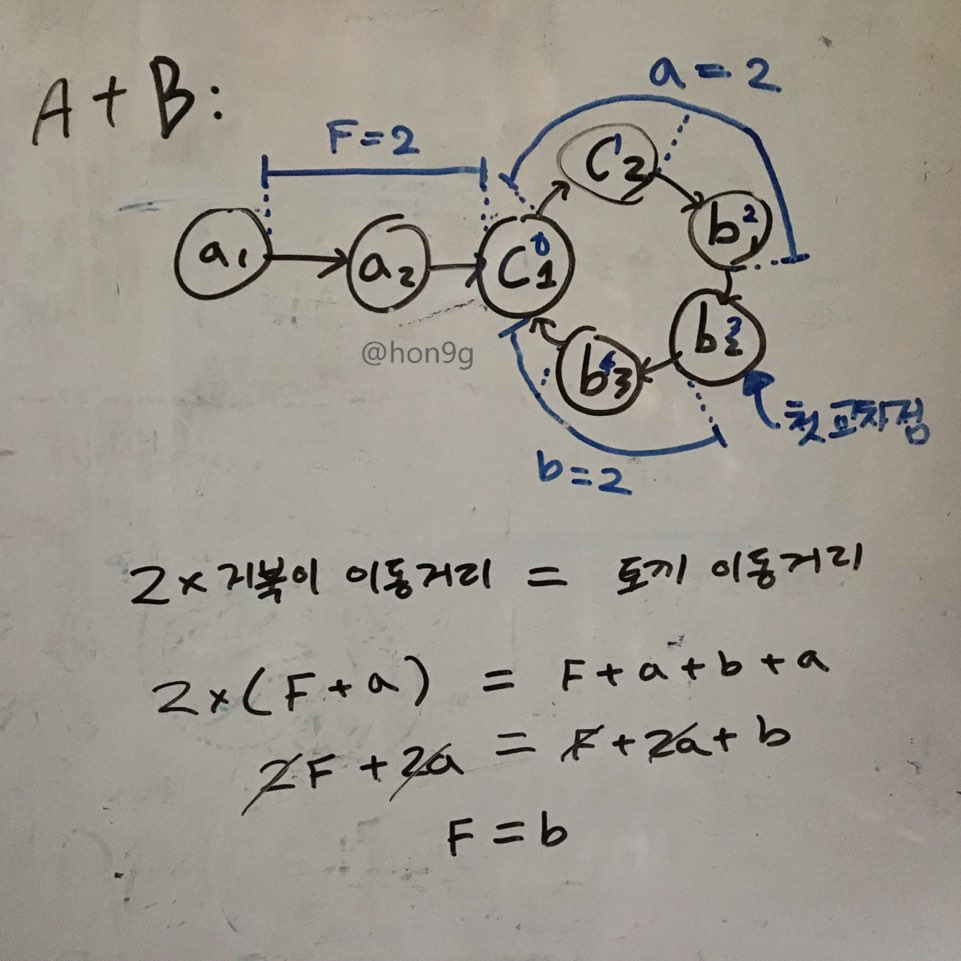 A + B:
a = 2
F = 2
a1 a2 C1 0 C2 1 b1 2
b2 3 b3 4
@hon9g
첫 교차점
b = 2
2 × 거북이 이동거리 = 토끼 이동거리
2 × (F + a) = F + a + b + a
2F + 2a = F + 2a + b
F = b